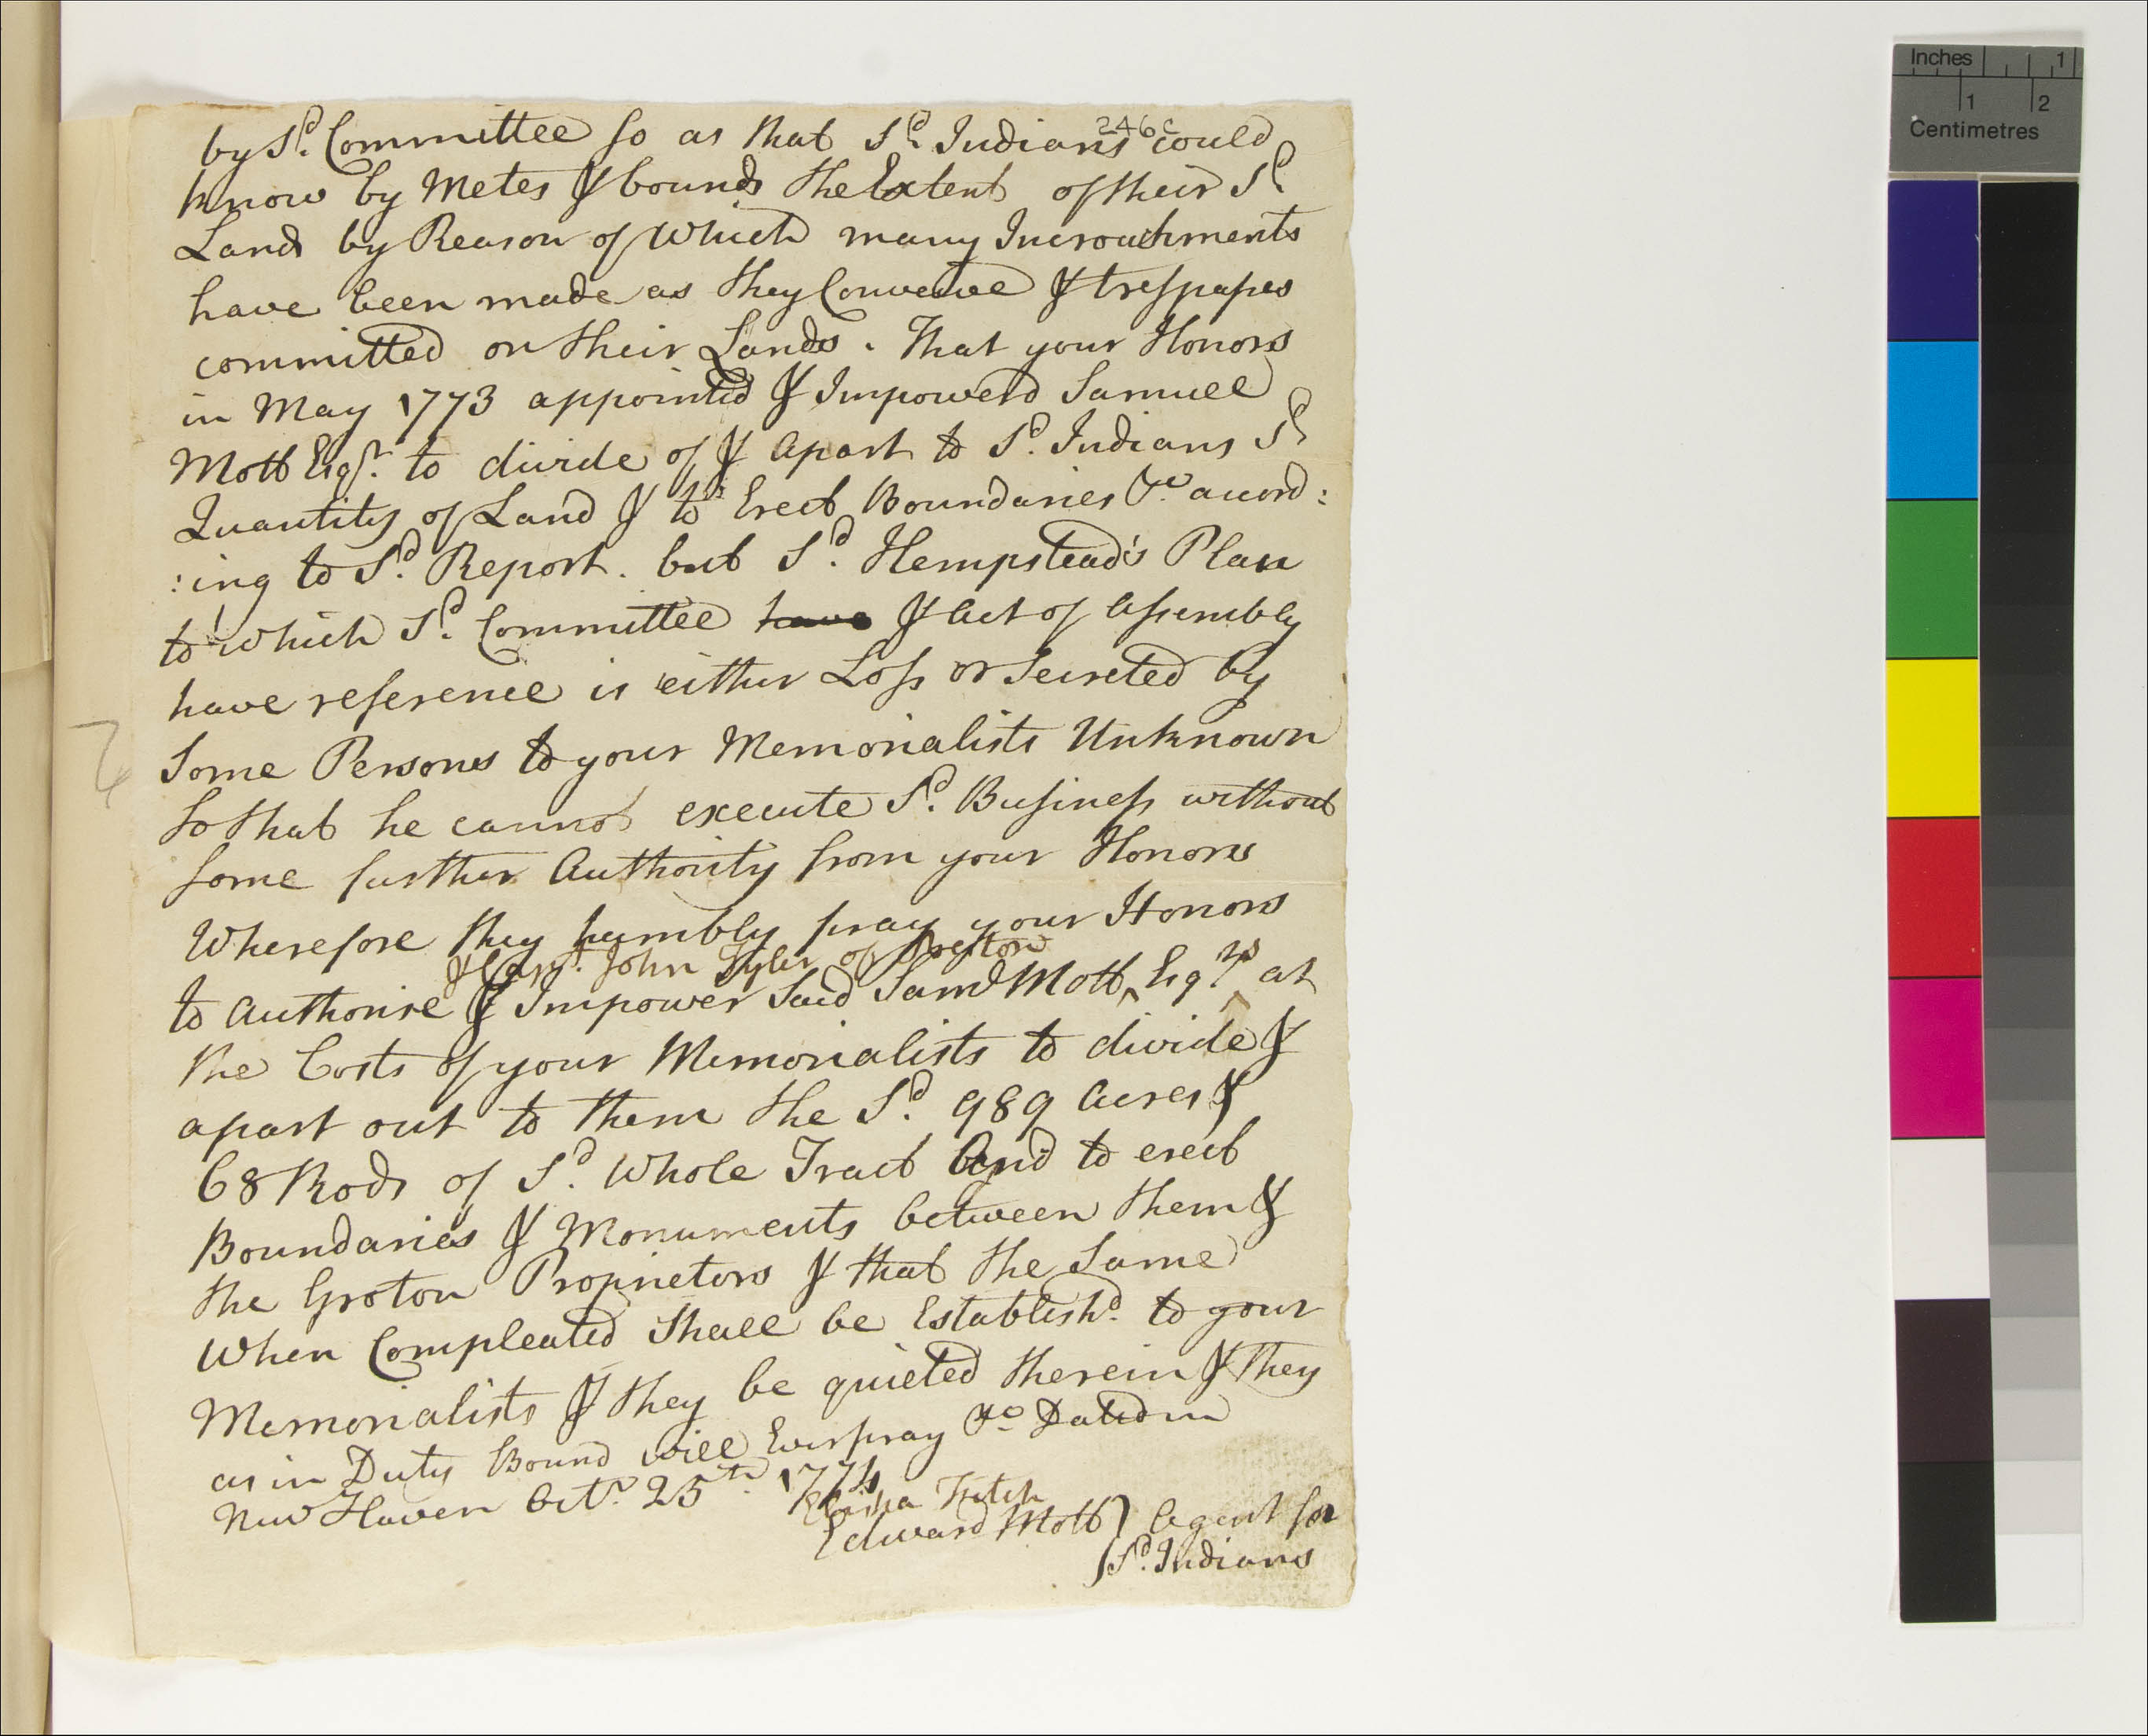 246c
by Sd. Committee so as that Sd. Indians could
know by Metes & bounds the Extent of their Sd
Land by Reason of Which many Incroachments
have been made as they Conceive & trespasses
committed on their Lands. That your Honors
in May 1773 appointed & Impowerd Samuel
Mott Esqr. to divide of & apart to Sd. Indians Sd
Quantity of Land & to Erect Boundaries &c accord:
:ing to Sd. Report. but Sd. Hempstead's Plan
to which Sd. Committee have & Act of Assembly
have reference is either Loss or Secreted by
Some Persons to your Memorialists Unknown
So that he cannot execute Sd. Business without
some further Authority from your Honors
Wherefore they humbly pray your Honors
& Capt. John Tyler of Preston
to Authorise & Impower Said Saml Mott ^ Esqrs at
the Costs of your Memorialists to divide &
apart out to them the Sd. 989 Acres &
68 Rods of Sd. Whole Tract And to erect
Boundaries & Monuments between them &
the Groton Proprietors & that the Same
When Compleated Shall be Establishd. to your
Memorialists & they be quieted therein & They
as in Duty Bound will Ever pray &c Dated in
New Haven Octr. 25th. 1774
Elisha Fitch
Edward Mott } Agent for
Sd. Indians
Inches 1
1 2
Centimetres